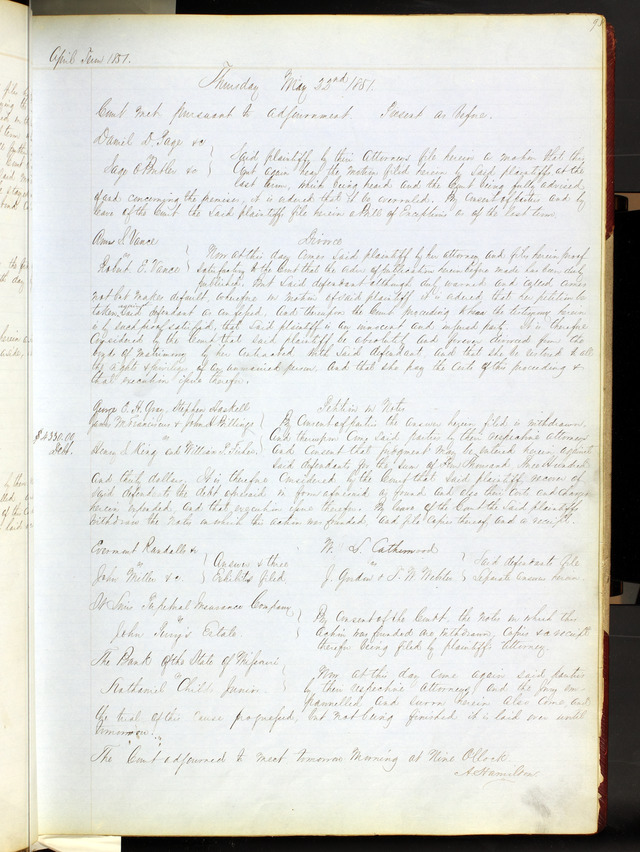 April Term 1851.
Thursday May 22nd 1851.
Court met pursuant to adjournment. Present as before.
Daniel D. Page &c
vs
Page & Butler &c
Said plaintiffs by their Attorneys file herein a motion that the
Court again hear the motion filed herein by said plaintiffs at the
last term, which being heard and the Court being fully advised
of and concerning the premises, it is ordered that it be overruled. By consent of parties and by
leave of the Court the said plaintiffs file herein a Bill of Exceptions as of the last term.
Vance
vs
Robert E. Vance
Divorce
Now at this day comes said plaintiff by her attorney and files herein proof
satisfactory to the Court that the order of publication heretofore made has been duly
published. But said defendant although duly warned and called comes
not but makes default, wherefore on motion of said plaintiff it is ordered, that her petition be
taken against said defendant as confessed. And thereupon the Court proceeding to hear the testimony herein
is by said proof satisfied, that said plaintiff is an innocent and injured party. It is therefore
considered by the Court that said plaintiff be absolutely and forever divorced from the
bonds of matrimony by her contracted with said defendant, and that she be restored to all
the rights & privileges of an unmarried person. And that she pay the costs of this proceeding &
that execution issue therefor.
George C. H. Gray, Stephen Haskell
John H. Billings
vs
Henry S. King and William T. Fisher
$4330.00
Debt.
Petition in Note.
By consent of parties the answer herein filed is withdrawn,
And thereupon come said parties by their respective attorneys
and consent that judgment may be entered herein against
said defendants for the sum of Four Thousand Three hundred
and thirty dollars. It is therefore considered by the Court that said plaintiffs recover of
said defendants the debt aforesaid in form aforesaid as found and also their costs and charges
herein expended, and that execution issue therefor. By leave of the Court the said plaintiffs
withdraw the notes on which this action was founded, and file copies thereof, and a receipt.
Evermont Randall &c
vs
John Miller &c.
Answer & three
Exhibits filed.
W. S. Catherwood
vs
J. Gordon & T. W. Webster
Said defendants file
separate answer herein.
St Louis Perpetual Insurance Company
vs
John Perry's Estate.
By consent of the Court. the notes on which this
action was founded are withdrawn, copies & a receipt
therefor being filed by plaintiffs Attorney.
The Bank of the State of Missouri
vs
Nathaniel Childs Junior.
Now at this day come again said parties
by their respective attorneys, and the jury em-
pannelled and sworn herein also come and
the trial of this cause progressed, but not being finished it is laid over until
tomorrow.
The Court adjourned to meet tomorrow morning at Nine O'Clock.
A. Hamilton